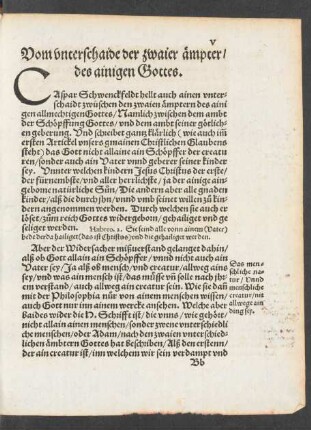 v
Vom vnterschaide der zwaier ämpter/
des ainigen Gottes.
CAspar Schwenckfeldt hellt auch ainen vnter-
schaidt zwischen den zwaien ämptern des aini
gen allmechtigen Gottes/ Namlich zwischen dem ambt
der Schöpffung Gottes/ vnd dem ambt seiner götlich-
en geberung. Vnd schreibet gantz klärlich (wie auch im
ersten Artickel vnsers gmainen Christlichen Glaubens
steht) das Gott nicht allaine ain Schöpffer der creatu
ren/ sonder auch ain Vater vnnd geberer seiner kinder
sey. Vnnter welchen kindern Jesus Christus der erste/
der fürnembste/ vnd aller herrlichste/ ja der ainige ain-
geborne natürliche Sůn. Die andern aber alle gnaden
kinder/ als die durch ihn/ vnnd vmb seinet willen zů kin
dern angenommen werden. Durch welchen sie auch er
löset/ zům reich Gottes widergeborn/ gehailiget vnd ge
seliget werden. Hebreo. 2. Sie send alle vonn ainem (Vater)
bede der da hailiget (Das ist Christus) vnd die gehailiget werden.
Aber der Widersacher mißuerstand gelanget dahin/
alß ob Gott allain ain Schöpffer/ vnnd nicht auch ain
Vater sey/ Ja alß ob mensch/ vnd creatur/ allweg ains
sey/ vnd was ain mensch ist/ das müsse vň solle nach jhr
em verstand/ auch allweg ain creatur sein. Wie sie dañ
mit der Philosophia nůr von ainem menschen wissen/
auch Gott nur inn ainem werck ansehen. Welche aber
Baides wider die H. Schrifft ist/ die vnns/ wie gehört/
nicht allain ainen menschen/ sonder zwene vnterschiedli
che menschen/ oder Adam/ nach den zwaien vnterschied-
lichen ämbtern Gottes hat beschriben/ Alß den erstenn/
der ain creatur ist/ inn welchem wir sein verdampt vnd
Das men-
schliche na-
tur/ vnnd
menschliche
creatur/ nit
allwegt ain
ding sey.
Bb